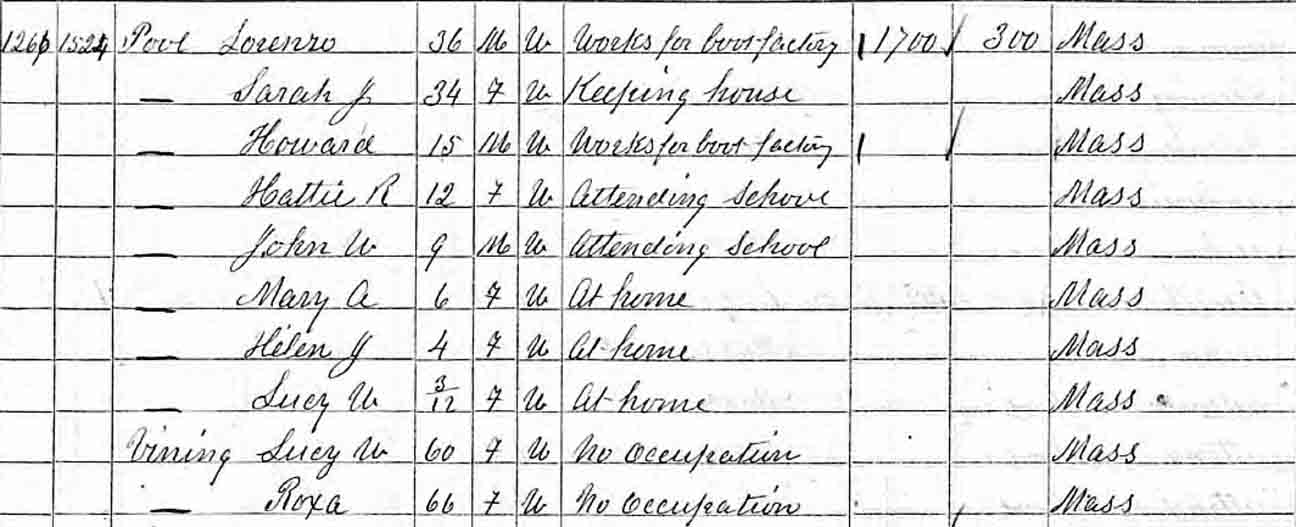 1266 1524 Pool Lorenzo 36 M W Works for boot factory 1700 300 Mass
— Sarah J 34 F W Keeping house Mass
— Howard 15 M W Works for boot factory Mass
— Hattie R 12 F W Attending School Mass
— John W 9 M W Attending School Mass
— Mary A 6 F W At home Mass
— Helen J 4 F W At home Mass
— Lucy W 3/12 F W At home Mass
Vining Lucy W 60 F W No Occupation Mass
— Roxa 66 F W No Occupation Mass